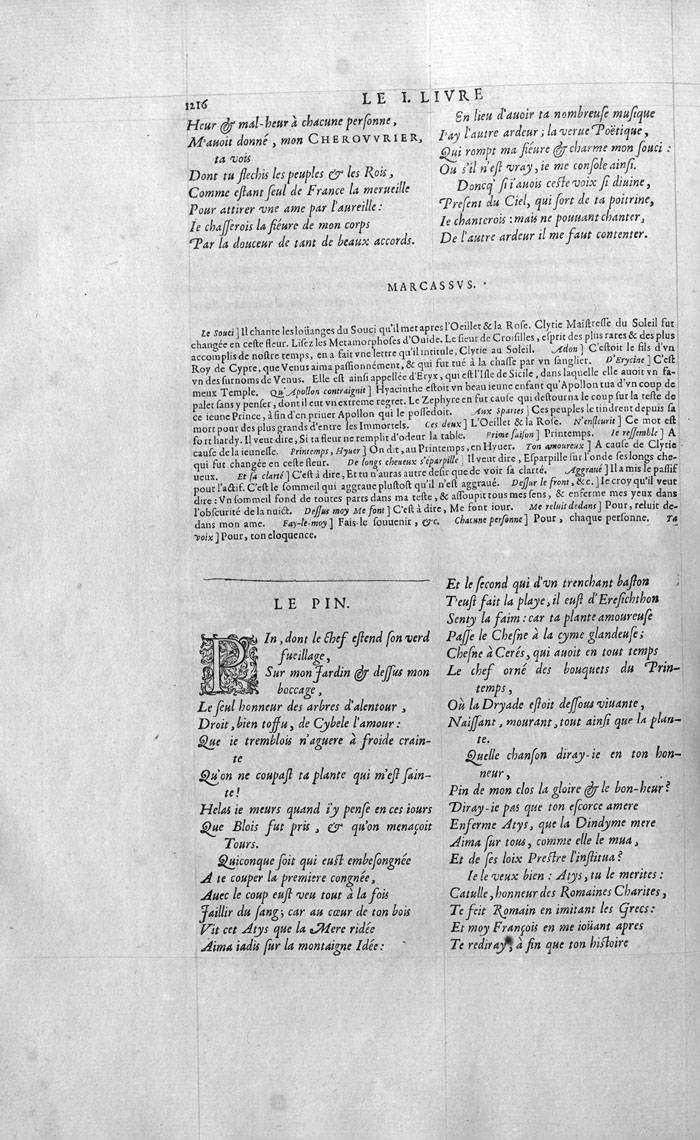 1216
LE I. LIVRE
Heur & mal-heur à chacune personne,
M'auoit donné, mon CHEROVVRIER,
ta vois
Dont tu flechis les peuples & les Rois,
Comme estant seul de France la merueille
Pour attirer vne ame par l'aureille:
Ie chasserois la fiéure de mon corps
Par la douceur de tant de beaux accords.
En lieu d'auoir ta nombreuse musique
I'ay l'autre ardeur; la verue Poëtique,
Qui rompt ma fiéure & charme mon souci:
Ou s'il n'est vray, ie me console ainsi.
Doncq' si i'auois ceste voix si diuine,
Present du Ciel, qui sort de ta poitrine,
Ie chanterois: mais ne pouuant chanter,
De l'autre ardeur il me faut contenter.
MARCASSVS.
Le Souci] Il chante les loüanges du Souci qu'il met apres l'Oeillet & la Rose. Clytie Maistresse du Soleil fut
changée en ceste fleur. Lisez les Metamorphoses d'Ouide. Le sieur de Croisilles, esprit des plus rares & des plus
accomplis de nostre temps, en a fait vne lettre qu'il intitule, Clytie au Soleil. Adon] C'estoit le fils d'vn
Roy de Cypre, que Venus aima passionnément, & qui fut tué à la chasse par vn sanglier. D'Erycine] C'est
vn des surnoms de Venus. Elle est ainsi appellée d'Eryx, qui est l'Isle de Sicile, dans laquelle elle auoit vn fa-
meux Temple. Qu'Apollon contraignit] Hyacinthe estoit vn beau ieune enfant qu'Apollon tua d'vn coup de
palet sans y penser, dont il eut vn extreme regret. Le Zephyre en fut cause qui destourna le coup sur la teste de
ce ieune Prince, à fin d'en priuer Apollon qui le possedoit. Aux Spartes] Ces peuples le tindrent depuis sa
mort pour des plus grands d'entre les Immortels. Ces deux] L'Oeillet & la Rose. N'enfleurit] Ce mot est
fort hardy. Il veut dire, Si ta fleur ne remplit d'odeur la table. Prime saison] Printemps. Ie ressemble] A
cause de la ieunesse. Printemps, Hyuer] On dit, au Printemps, en Hyuer. Ton amoureux] A cause de Clytie
qui fut changée en ceste fleur. De longs cheueux s'éparpille] Il veut dire, Esparpille sur l'onde ses longs che-
ueux. Et sa clarté] C'est à dire, Et tu n'auras autre desir que de voir sa clarté. Aggraué] Il a mis le passif
pour l'actif. C'est le sommeil qui aggraue plustost qu'il n'est aggraué. Dessur le front, &c.] Ie croy qu'il veut
dire: Vn sommeil fond de toutes parts dans ma teste, & assoupit tous mes sens, & enferme mes yeux dans
l'obscurité de la nuict. Dessus moy Me font] C'est à dire, Me font iour. Me reluit dedans] Pour, reluit de-
dans mon ame. Fay-le-moy] Fais-le souuenir, &c. Chacune personne] Pour, chaque personne. Ta
voix] Pour, ton eloquence.
LE PIN.
PIn, dont le chef estend son verd
fueillage,
Sur mon Jardin & dessus mon
boccage,
Le seul honneur des arbres d'alentour,
Droit, bien toffu, de Cybele l'amour:
Que ie tremblois n'aguere à froide crain-
te
Qu'on ne coupast ta plante qui m'est sain-
te!
Helas ie meurs quand i'y pense en ces iours
Que Blois fut pris, & qu'on menaçoit
Tours.
Quiconque soit qui eust embesongnée
A te couper la premiere congnée,
Auec le coup eust veu tout à la fois
Jaillir du sang; car au cœur de ton bois
Vit cet Atys que la Mere ridée
Aima iadis sur la montaigne Idée:
Et le second qui d'vn trenchant baston
T'eust fait la playe, il eust d'Eresichthon
Senty la faim: car ta plante amoureuse
Passe le Chesne à la cyme glandeuse;
Chesne à Cerés, qui auoit en tout temps
Le chef orné des bouquets du Prin-
temps,
Où la Dryade estoit dessous viuante,
Naissant, mourant, tout ainsi que la plan-
te.
Quelle chanson diray-ie en ton hon-
neur,
Pin de mon clos la gloire & le bon-heur?
Diray-ie pas que ton escorce amere
Enferme Atys, que la Dindyme mere
Aima sur tous, comme elle le mua,
Et de ses loix Prestre l'institua?
Ie le veux bien: Atys, tu le merites:
Catulle, honneur des Romaines Charites,
Te feit Romain en imitant les Grecs:
Et moy François en me ioüant apres
Te rediray, à fin que ton histoire